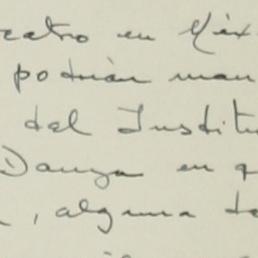 teatro en Méx
podrían man
del Institu
Danza en q
, alguna